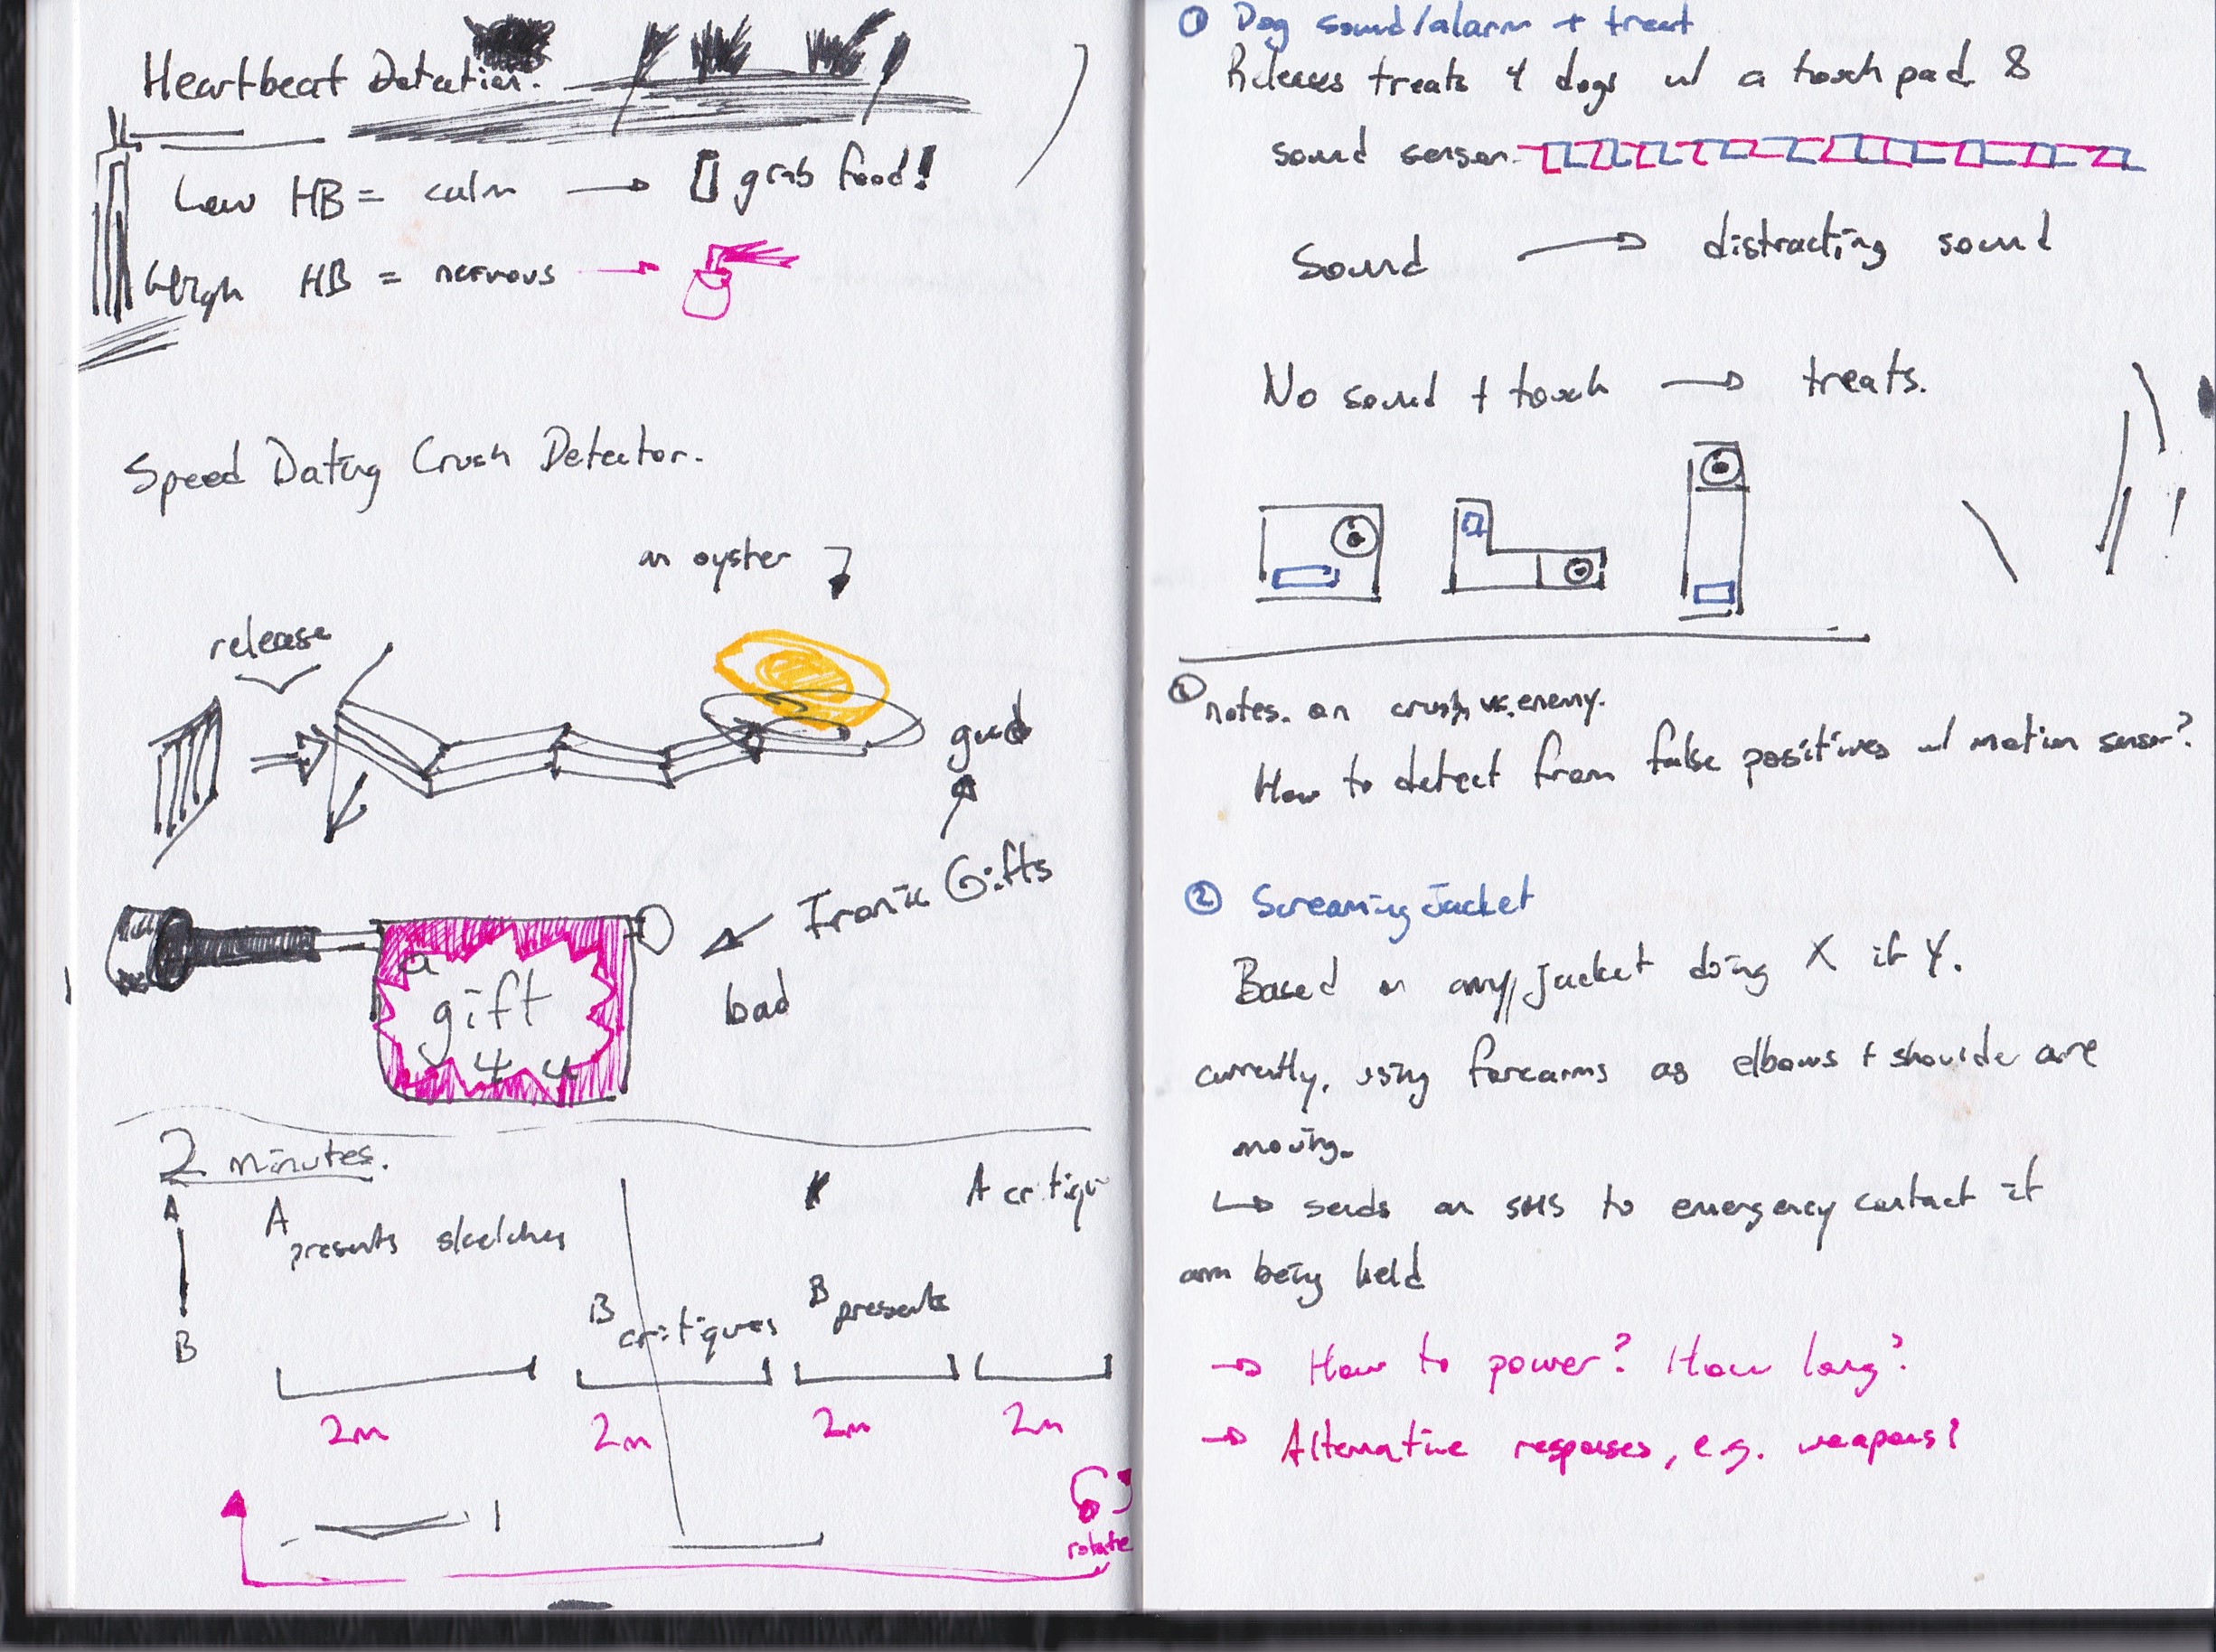 Heartbeat Detection.
Low HB = calm → grab food!
High HB = nervous →
Speed Dating Crush Detector.
an oyster
release
good
Ironic Gifts
bad
a
gift
4 u
2 minutes.
A
B
A
presents sketches
B
critiques
B
presents
A critique
2m 2m 2m 2m
rotate
① Dog sound/alarm + treat
Releases treats 4 dogs w/ a touch pad &
sound sensor.
Sound → distracting sound
No sound + touch → treats.
① notes. on crush vs. enemy.
How to detect from false positives w/ motion sensor?
② Screaming Jacket
Based on any Jacket doing X if Y.
currently, using forearms as elbows + shoulder are
moving.
↳ sends an SMS to emergency contact if
arm being held
→ How to power? How long?
→ Alternative responses, e.g. weapons?